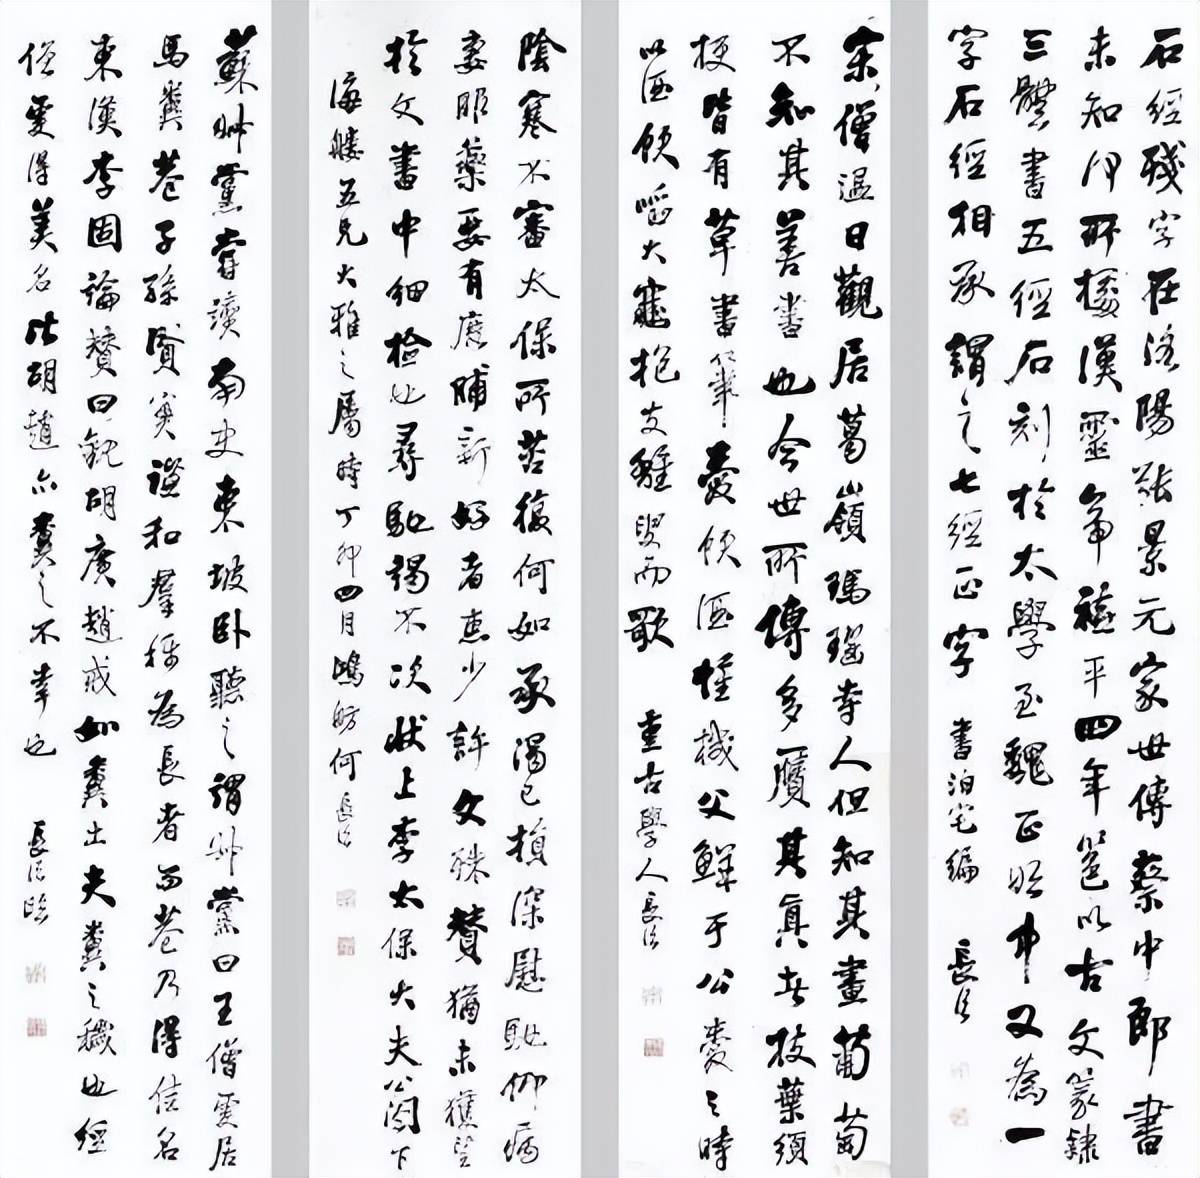 石經殘字在洛陽張景元家世傳蔡中郎書
未知何所據漢靈帝熹平四年邕以古文篆隸
三體書五經石刻於太學至魏正始中又為一
字石經相承謂之七經正字 書泊宅編 長
宋僧溫日觀居葛嶺瑪瑙寺人但知其畫葡萄
不知其善書也今世所傳多贗其真者枝葉須
梗皆有草書筆愛飲酒惟 父鮮于公愛之時
以酒飲 大 抱支離 而歌 重古學人長
陰寒不審太保所苦復何如承渴已損深慰馳仰病
妻服藥要有鹿脯新好者惠少許文殊贊猶未獲望
於文書中細檢也尋馳謁不次狀上李太保大夫公閤下
海 五兄大雅之屬時丁卯四月鴻舫何長治
蘇叔黨嘗讀南史東坡臥聽之謂叔黨曰王僧虔居
馬糞巷子孫賢實謙和群稱為長者而巷乃得佳名
東漢李固論贊曰視胡廣趙戒如糞土夫糞之穢也經
僧虔得美名比胡趙亦糞之不幸也 長治臨